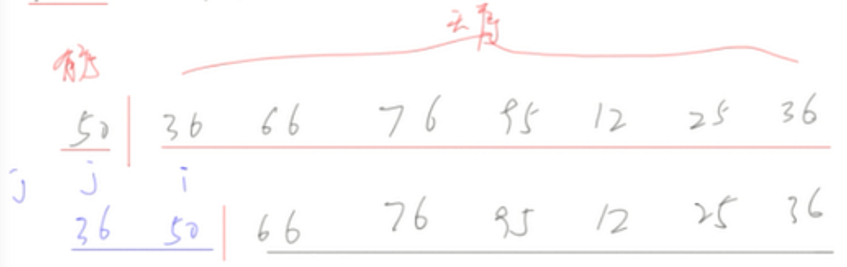 无序
有序
50 36 66 76 95 12 25 36
j j i
36 50 66 76 95 12 25 36